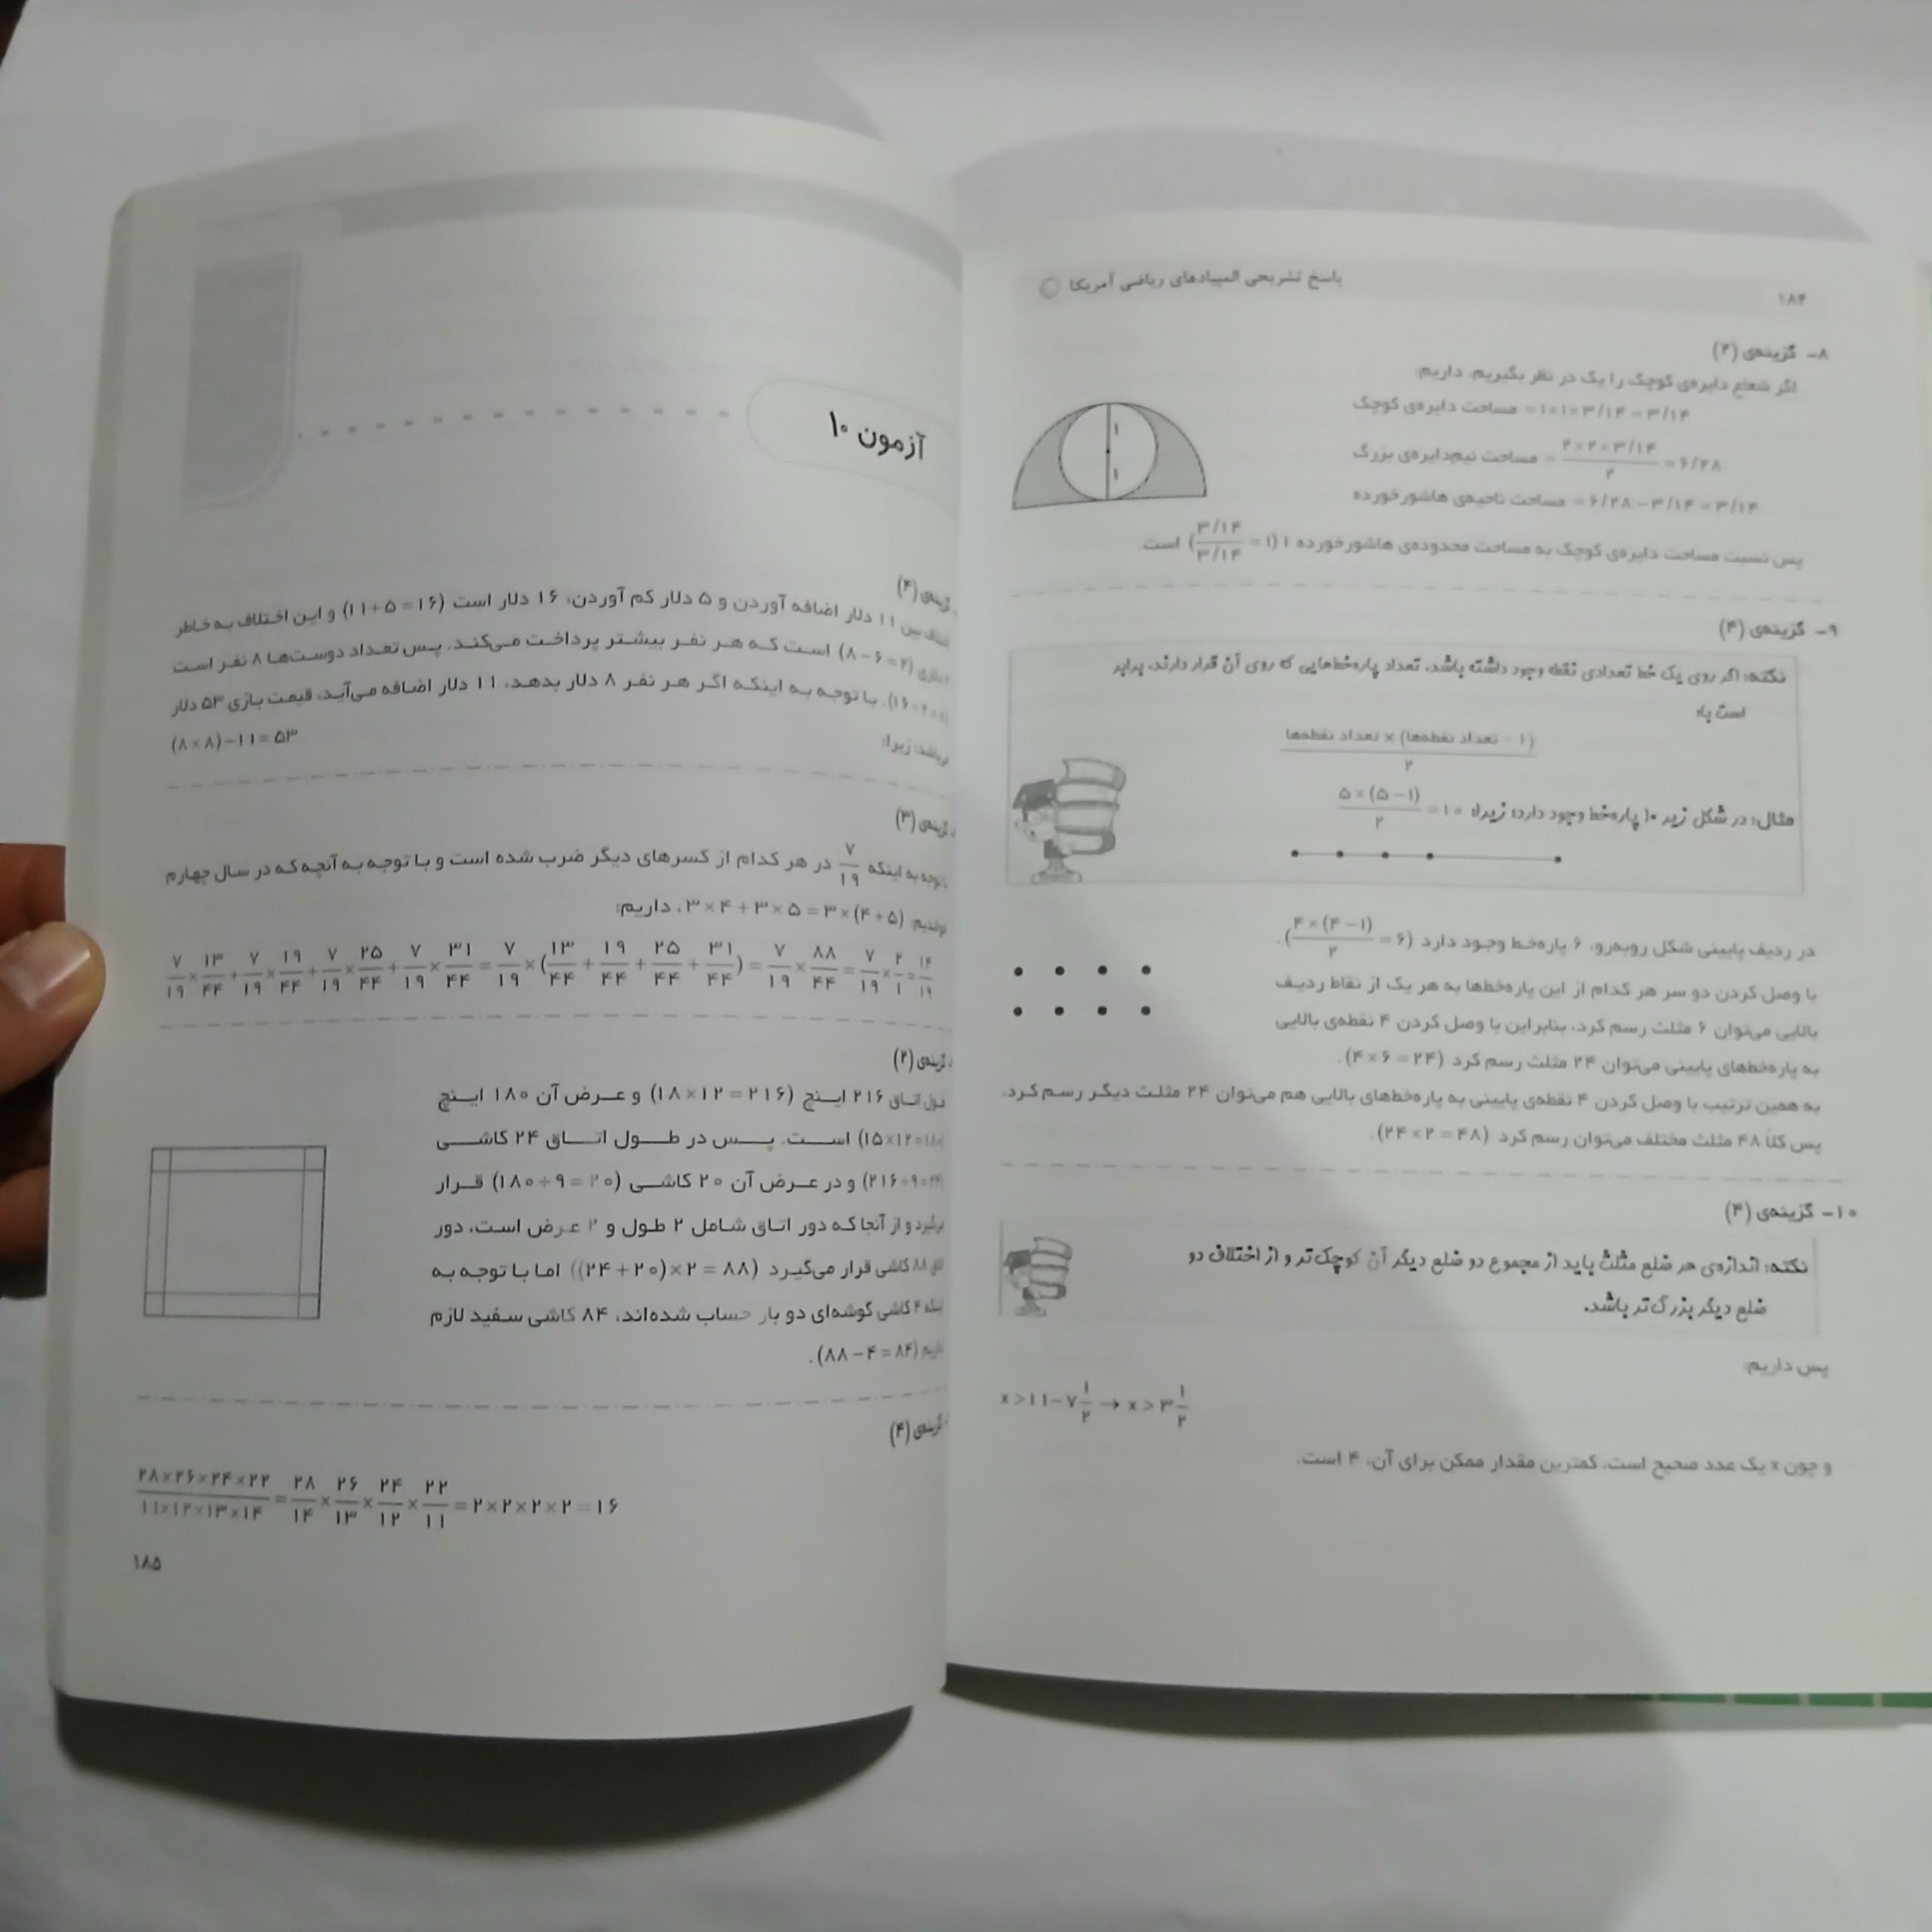 ۱۸۴
پاسخ تشریحی المپیادهای ریاضی آمریکا
۸- گزینه‌ی (۲)
اگر شعاع دایره‌ی کوچک را یک در نظر بگیریم، داریم:
مساحت دایره‌ی کوچک = ۱×۱×۳/۱۴ = ۳/۱۴
مساحت نیم‌دایره‌ی بزرگ = (۲×۲×۳/۱۴)/۲ = ۶/۲۸
مساحت ناحیه‌ی هاشورخورده = ۶/۲۸ − ۳/۱۴ = ۳/۱۴
۱
۱
پس نسبت مساحت دایره‌ی کوچک به مساحت محدوده‌ی هاشورخورده ۱ (۳/۱۴ / ۳/۱۴ = ۱) است.
۹- گزینه‌ی (۴)
نکته: اگر روی یک خط تعدادی نقطه وجود داشته باشد، تعداد پاره‌خط‌هایی که روی آن قرار دارند، برابر
است با:
(۱ - تعداد نقطه‌ها) × تعداد نقطه‌ها
۲
مثال: در شکل زیر ۱۰ پاره‌خط وجود دارد؛ زیرا: (۵×(۵−۱))/۲ = ۱۰
در ردیف پایینی شکل روبه‌رو، ۶ پاره‌خط وجود دارد ((۴×(۴−۱))/۲ = ۶).
با وصل کردن دو سر هر کدام از این پاره‌خط‌ها به هر یک از نقاط ردیف
بالایی می‌توان ۶ مثلث رسم کرد، بنابراین با وصل کردن ۴ نقطه‌ی بالایی
به پاره‌خط‌های پایینی می‌توان ۲۴ مثلث رسم کرد (۴×۶ = ۲۴).
به همین ترتیب با وصل کردن ۴ نقطه‌ی پایینی به پاره‌خط‌های بالایی هم می‌توان ۲۴ مثلث دیگر رسم کرد.
پس کلاً ۴۸ مثلث مختلف می‌توان رسم کرد (۲۴×۲ = ۴۸).
۱۰- گزینه‌ی (۴)
نکته: اندازه‌ی هر ضلع مثلث باید از مجموع دو ضلع دیگر آن کوچک‌تر و از اختلاف دو
ضلع دیگر بزرگ‌تر باشد.
پس داریم:
x > ۱۱ − ۷ ۱/۲ → x > ۳ ۱/۲
و چون x یک عدد صحیح است، کمترین مقدار ممکن برای آن، ۴ است.
آزمون ۱۰
گزینه‌ی (۴)
بین ۱۱ دلار اضافه آوردن و ۵ دلار کم آوردن، ۱۶ دلار است (۱۱+۵ = ۱۶) و این اختلاف به خاطر
(۸−۶ = ۲) است که هر نفر بیشتر پرداخت می‌کند. پس تعداد دوست‌ها ۸ نفر است
با توجه به اینکه اگر هر نفر ۸ دلار بدهد، ۱۱ دلار اضافه می‌آید، قیمت بازی ۵۳ دلار
زیرا:
(۸×۸)−۱۱ = ۵۳
گزینه‌ی (۳)
با توجه به اینکه ۷/۱۹ در هر کدام از کسرهای دیگر ضرب شده است و با توجه به آنچه که در سال چهارم
خواندیم: ۳×۴+۳×۵ = ۳×(۴+۵)، داریم:
۷/۱۹ × ۱۳/۴۴ + ۷/۱۹ × ۱۹/۴۴ + ۷/۱۹ × ۲۵/۴۴ + ۷/۱۹ × ۳۱/۴۴ = ۷/۱۹ × (۱۳/۴۴ + ۱۹/۴۴ + ۲۵/۴۴ + ۳۱/۴۴) = ۷/۱۹ × ۸۸/۴۴ = ۷/۱۹ × ۲/۱ = ۱۴/۱۹
گزینه‌ی (۲)
طول اتاق ۲۱۶ اینچ (۱۸×۱۲ = ۲۱۶) و عرض آن ۱۸۰ اینچ
(۱۵×۱۲ = ۱۸۰) است. پس در طول اتاق ۲۴ کاشی
(۲۱۶÷۹ = ۲۴) و در عرض آن ۲۰ کاشی (۱۸۰÷۹ = ۲۰) قرار
می‌گیرد و از آنجا که دور اتاق شامل ۲ طول و ۲ عرض است، دور
اتاق ۸۸ کاشی قرار می‌گیرد (۲×(۲۴+۲۰) = ۸۸) اما با توجه به
اینکه ۴ کاشی گوشه‌ای دو بار حساب شده‌اند، ۸۴ کاشی سفید لازم
داریم (۸۸−۴ = ۸۴).
گزینه‌ی (۴)
(۲۸×۲۶×۲۴×۲۲)/(۱۱×۱۲×۱۳×۱۴) = ۲۸/۱۴ × ۲۶/۱۳ × ۲۴/۱۲ × ۲۲/۱۱ = ۲×۲×۲×۲ = ۱۶
۱۸۵